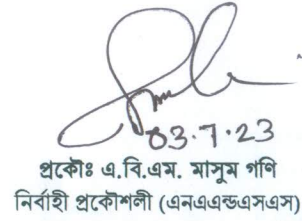 03.7.23
প্রকৌঃ এ.বি.এম. মাসুম গণি
নির্বাহী প্রকৌশলী (এনএএন্ডএসএস)